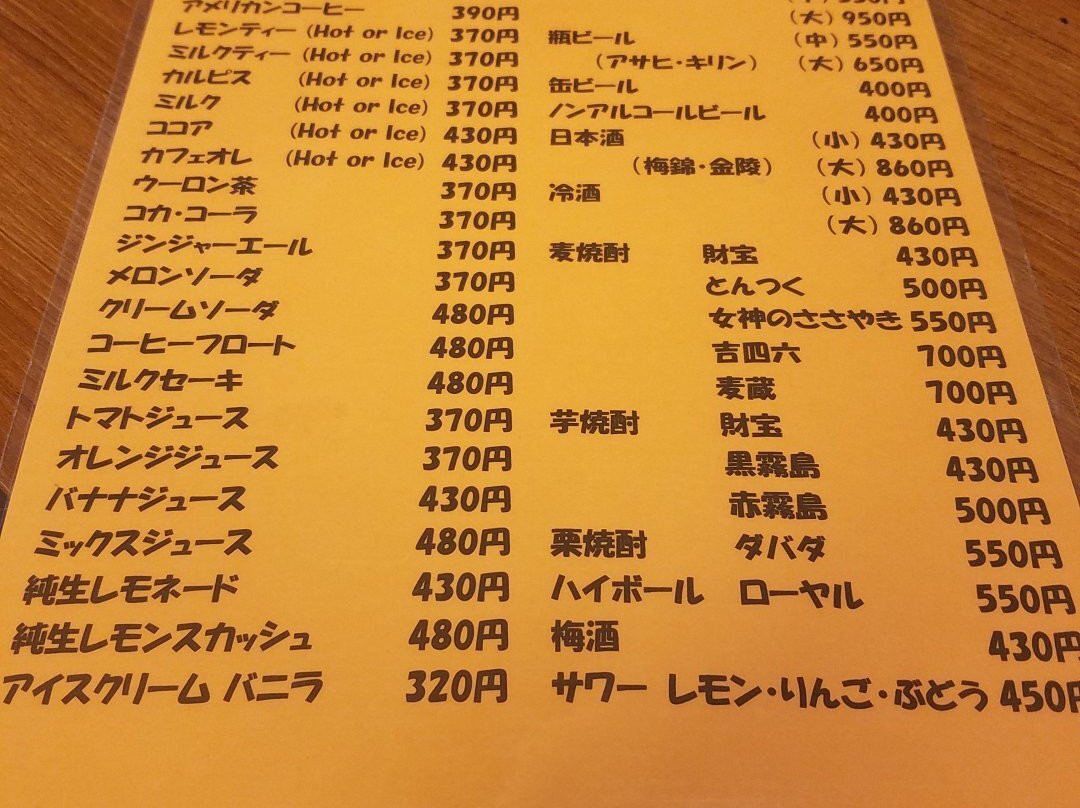 アメリカンコーヒー 390円
レモンティー (Hot or Ice) 370円
ミルクティー (Hot or Ice) 370円
カルピス (Hot or Ice) 370円
ミルク (Hot or Ice) 370円
ココア (Hot or Ice) 430円
カフェオレ (Hot or Ice) 430円
ウーロン茶 370円
コカ・コーラ 370円
ジンジャーエール 370円
メロンソーダ 370円
クリームソーダ 480円
コーヒーフロート 480円
ミルクセーキ 480円
トマトジュース 370円
オレンジジュース 370円
バナナジュース 430円
ミックスジュース 480円
純生レモネード 430円
純生レモンスカッシュ 480円
アイスクリーム バニラ 320円
(大) 950円
瓶ビール (中) 550円
(アサヒ・キリン) (大) 650円
缶ビール 400円
ノンアルコールビール 400円
日本酒 (小) 430円
(梅錦・金陵) (大) 860円
冷酒 (小) 430円
(大) 860円
麦焼酎 財宝 430円
とんつく 500円
女神のささやき 550円
吉四六 700円
麦蔵 700円
芋焼酎 財宝 430円
黒霧島 430円
赤霧島 500円
栗焼酎 ダバダ 550円
ハイボール ローヤル 550円
梅酒 430円
サワー レモン・りんご・ぶどう 450円